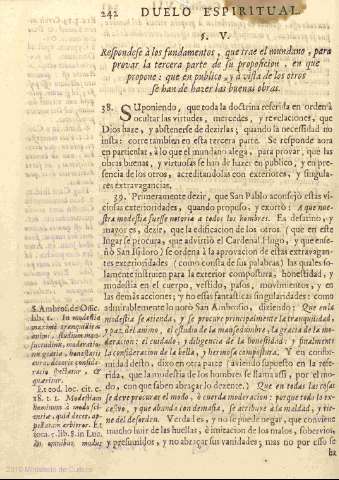 242 DUELO ESPIRITUAL
§. V.
Respondese à los fundamentos, que trae el mundano, para
provar la tercera parte de su proposicion, en que
propone: que en publico, y à vista de los otros
se han de hazer las buenas obras.
38. Suponiendo, que toda la doctrina referida en orden à
ocultar las virtudes, mercedes, y revelaciones, que
Dios haze, y abstenerse de dezirlas; quando la necessidad no
insta: corre tambien en esta tercera parte. Se responde aora
en particular, à lo que el mundano alega, para provar, que las
obras buenas, y virtuosas se han de hazer en publico, y en pre-
sencia de los otros, acreditandolas con exteriores, y singula-
res extravagancias.
39. Primeramente dezir, que San Pablo aconsejò estas vi-
ciosas exterioridades, quando propuso, y exortò: A que nues-
tra modestia fuesse notoria à todos los hombres. Es desatino, y
mayor es, dezir, que la edificacion de los otros (que en este
lugar se procura, que advirtiò el Cardenal Hugo, y que ense-
ñò San Isidoro) se ordena à la aprovacion de estas extravagan-
tes exterioridades (como consta de sus palabras) las quales so-
lamente instruyen para la exterior compostura, honestidad, y
modestia en el cuerpo, vestido, passos, movimientos, y en
las demàs acciones; y no essas fantasticas singularidades: como
admirablemente lo notò San Ambrosio, diziendo: Que en la
modestia se atienda, y se procure principalmente la tranquilidad,
y paz del animo, el estudio de la mansedumbre, la gracia de la mo-
deracion: el cuidado, y diligencia de la honestidad: y finalmente
la consideracion de la bella, y hermosa compostura. Y en confor-
midad desto, dixo en otra parte (aviendo supuesto en la refe-
rida, que la modestia de los hombres se llama assi, por el mo-
do, con que saben abraçar lo dezente.) Que en todas las cosas
se deve procurar el modo, ò cuerda moderacion: porque todo lo ex-
cesivo, y que abunda con demasia, se atribuye à la maldad, y tie-
ne del desorden. Verdad es, y no se puede negar, que conviene
mucho huir de las huellas, è imitacion de los malos, sobervios,
y presumidos, y no abraçar sus vanidades; mas no por esso se
ha
S. Ambros. de Offic.
lib. 1. In modestia
maximè tranquilita
animi, studium man-
suetudinis, moderatio-
nis gratia, honestatis
cura, decoris conside-
ratio spectatur, &
quæritur.
Et eod. loc. cit. c.
18. Modestiam